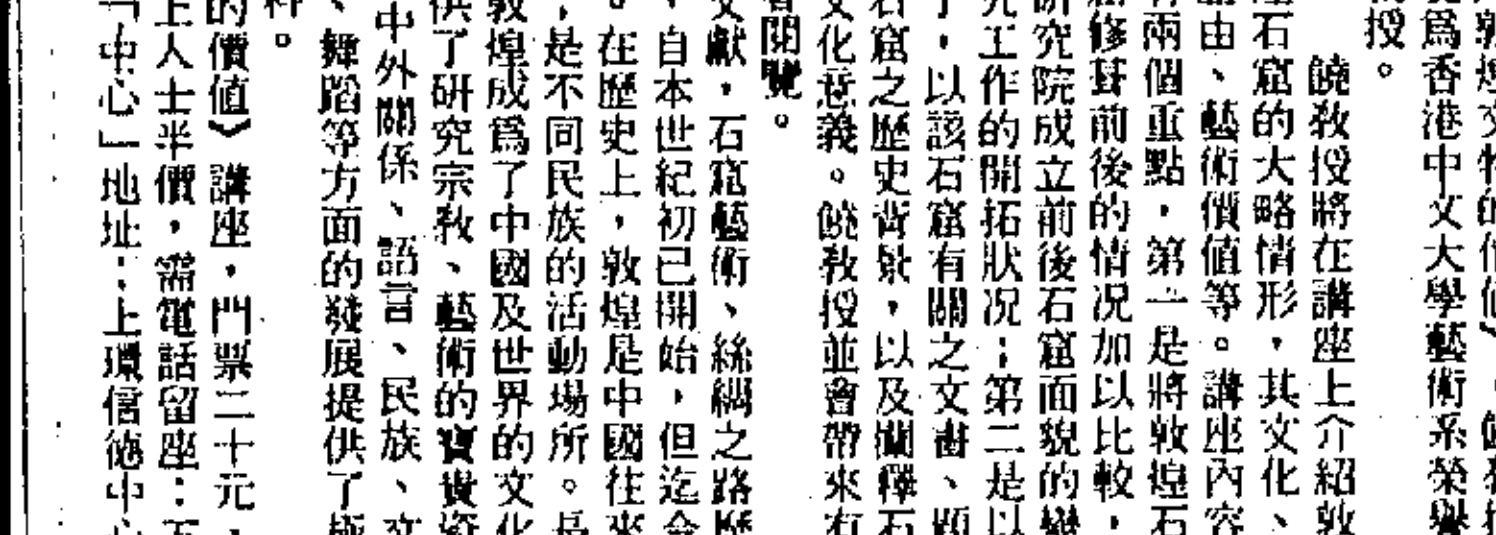 敦煌文物的價值》，饒教授
爲香港中文大學藝術系榮譽
授。
饒教授將在講座上介紹敦
石窟的大略情形，其文化、
由、藝術價值等。講座內容
兩個重點，第一是將敦煌石
修葺前後的情況加以比較，
研究院成立前後石窟面貌的變
究工作的開拓狀况；第二是以
，以該石窟有關之文書、題
石窟之歷史背景，以及闡釋石
文化意義。饒教授並會帶來有
閱覽。
文獻，石窟藝術、絲綢之路歷
，自本世紀初已開始，但迄今
。在歷史上，敦煌是中國往來
，是不同民族的活動場所。長
敦煌成爲了中國及世界的文化
供了研究宗教、藝術的寶貴資
中外關係、語言、民族、文
、舞蹈等方面的發展提供了極
料。
的價值》講座，門票二十元，
上人士半價，需電話留座：五
「中心」地址：上環信德中心